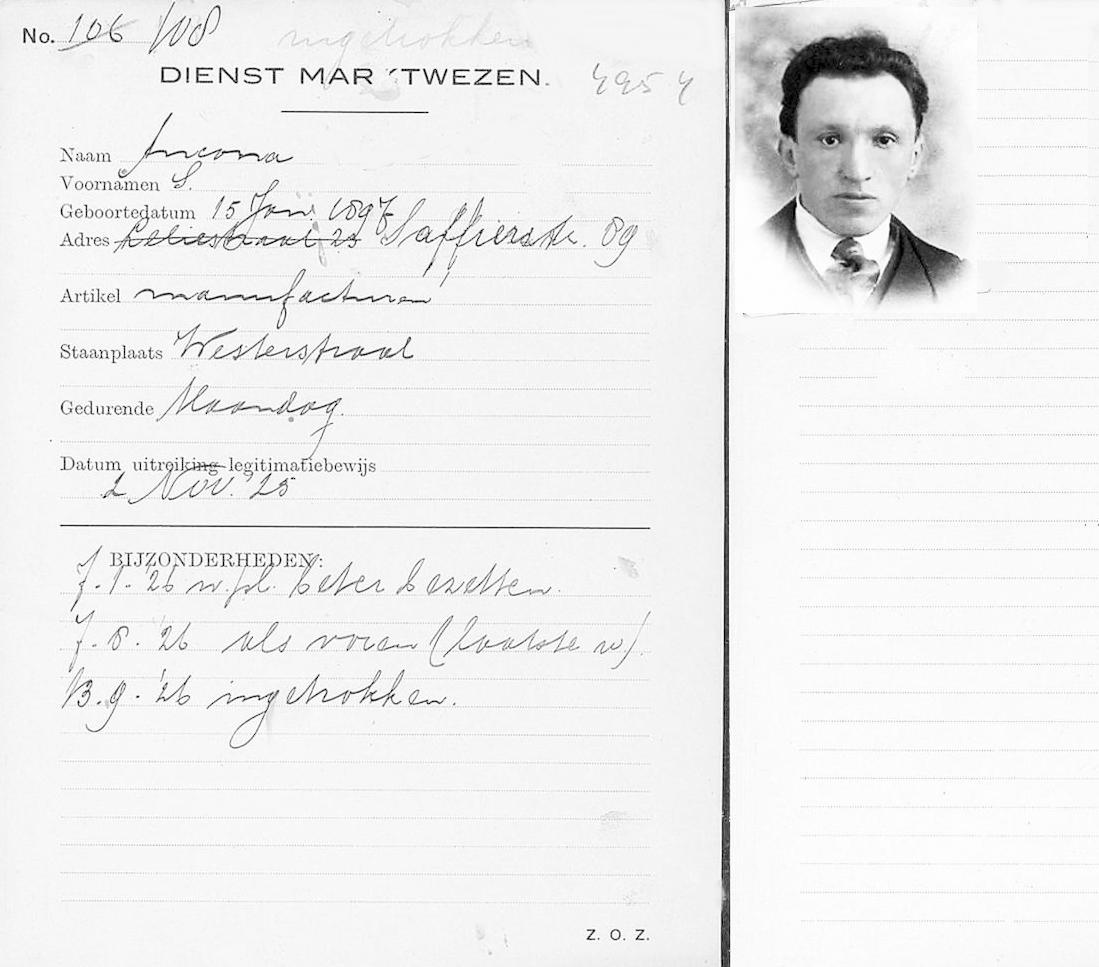 No. 106 108
ingetrokken
DIENST MARKTWEZEN.
Naam Ancona
Voornamen S.
Geboortedatum 15 Jan. 1897
Adres Leliestraat 23 Saffierstr. 89
Artikel manufacturen
Staanplaats Westerstraat
Gedurende Maandag.
Datum uitreiking legitimatiebewijs
2 Nov. '25
BIJZONDERHEDEN:
7.1.'26 w. pl. beter bezetten.
7.8.'26 als voren (laatste w).
13.9.'26 ingetrokken.
Z. O. Z.